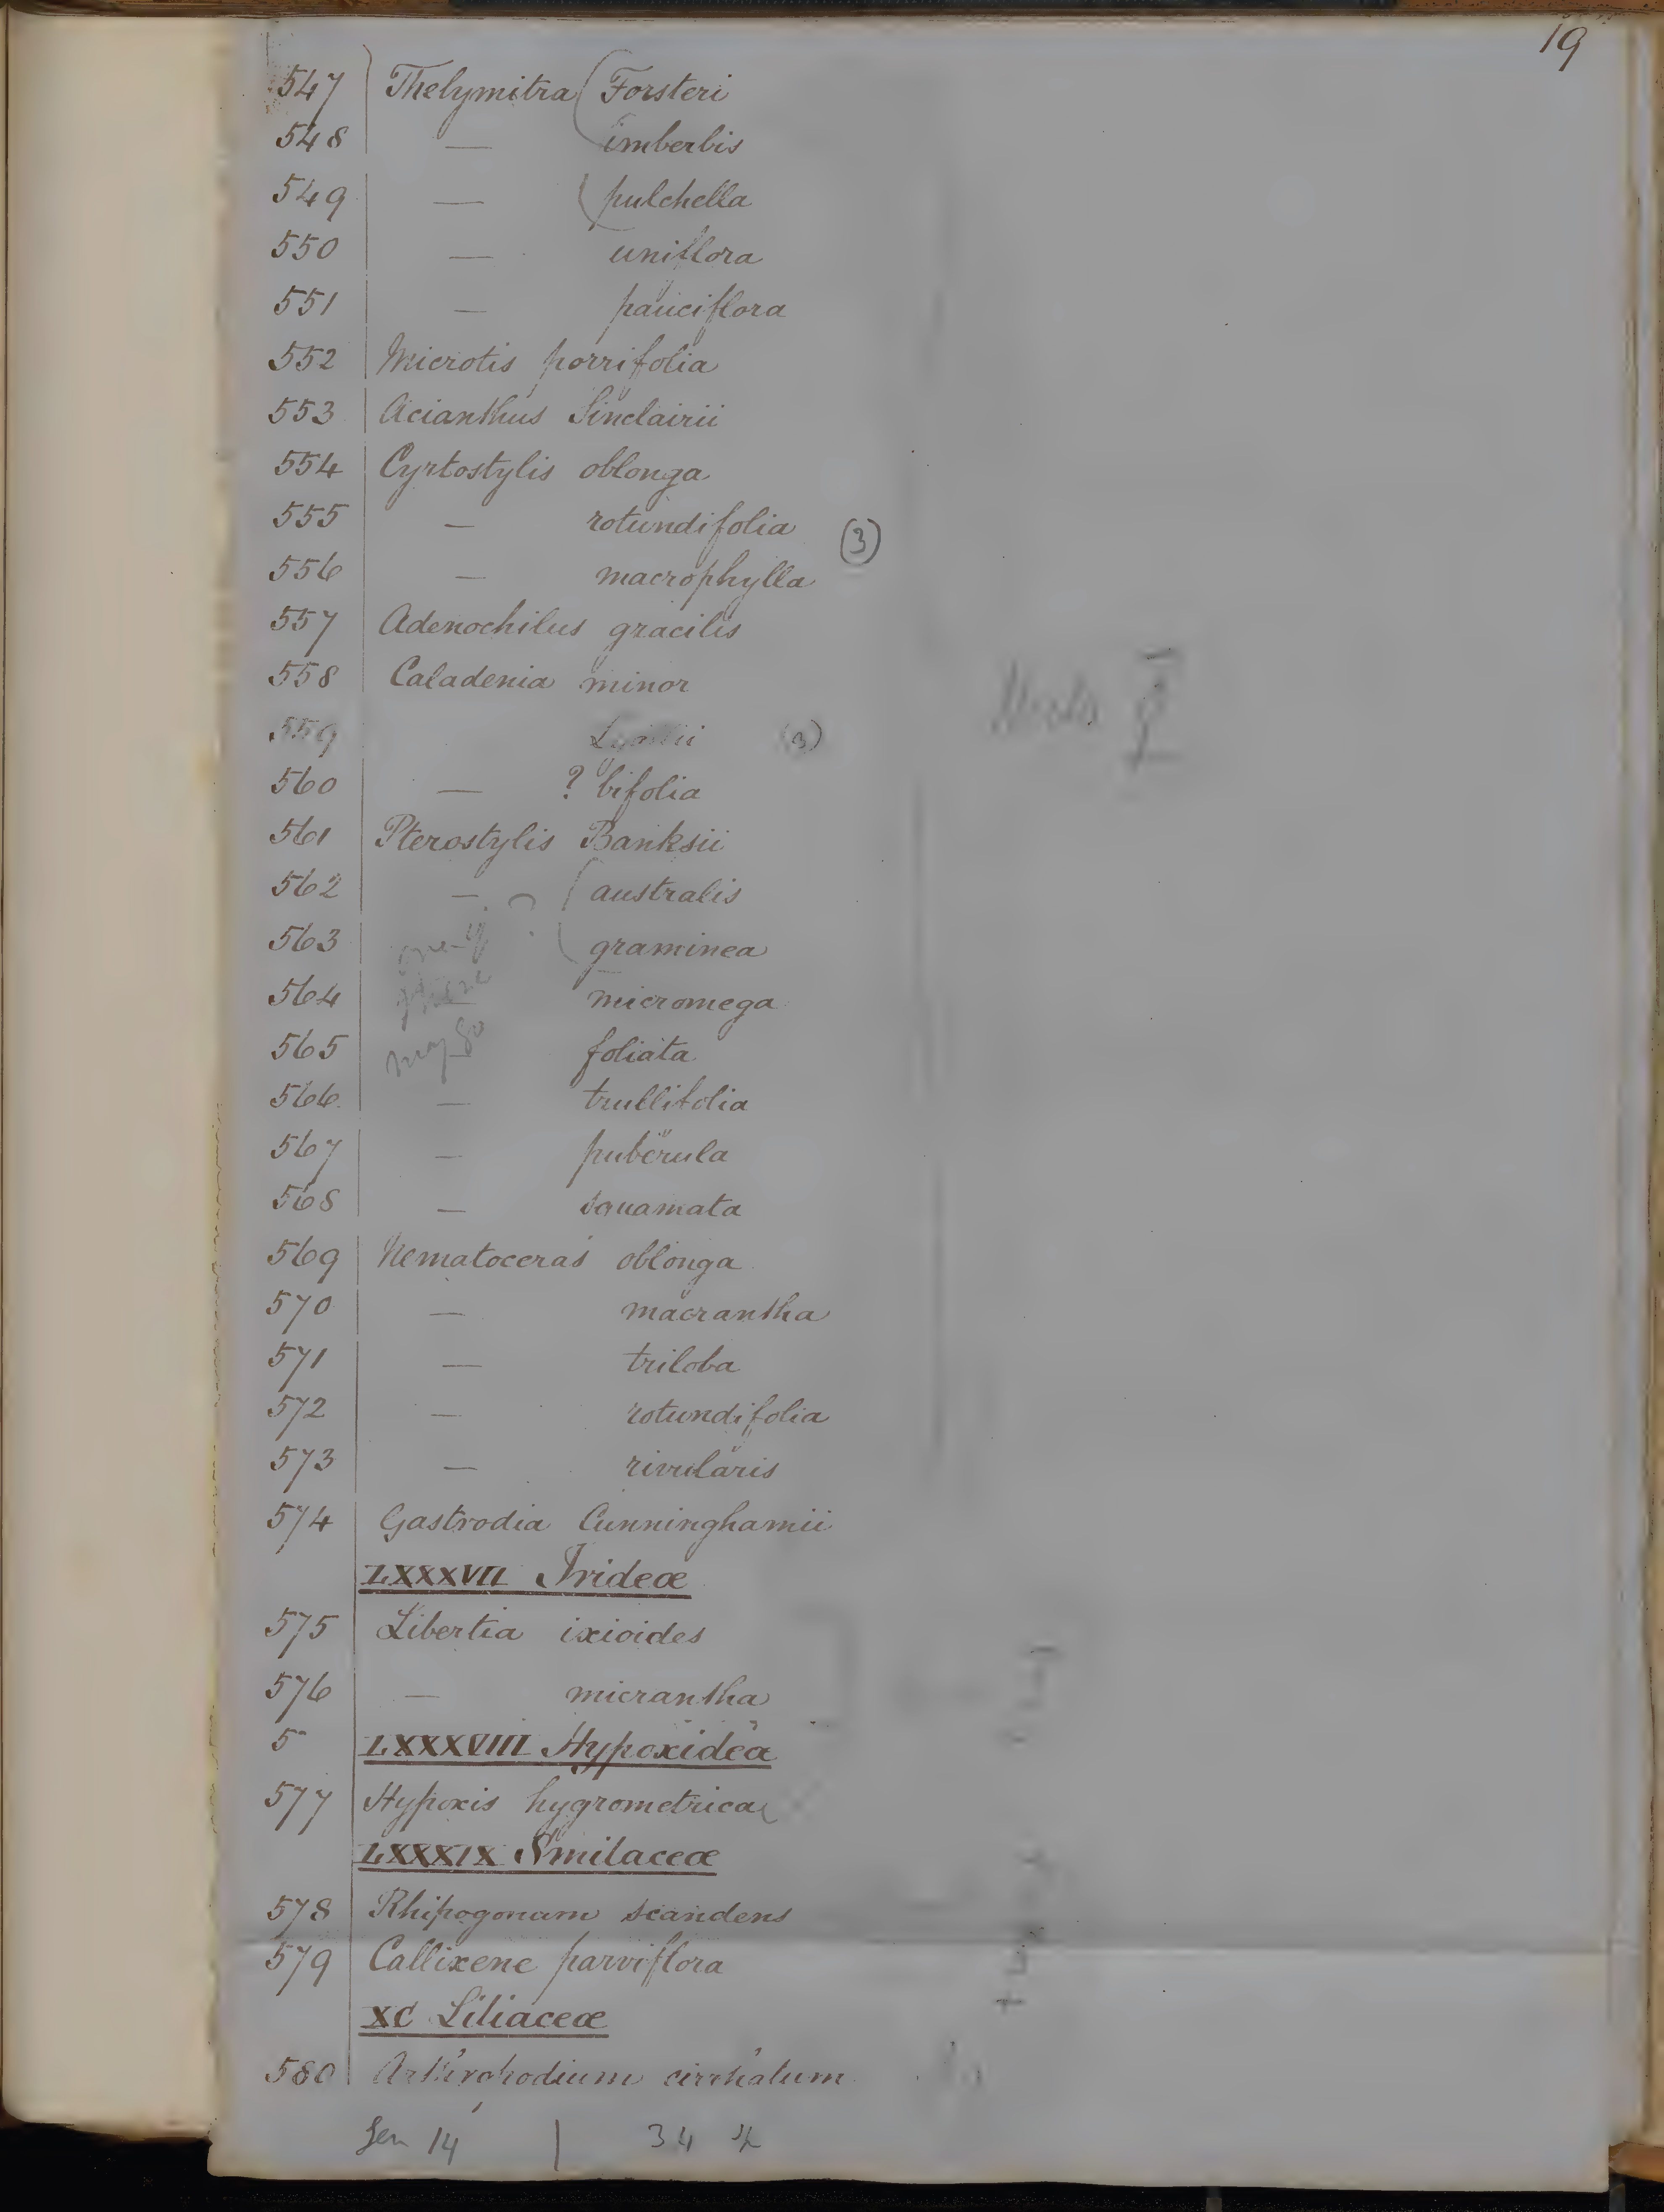 19
547 Thelymitra Forsteri
548 — imberbis
549 — pulchella
550 — uniflora
551 — pauciflora
552 Microtis porrifolia
553 Acianthus Sinclairii
554 Cyrtostylis oblonga
555 — rotundifolia (3)
556 — macrophylla
557 Adenochilus gracilis
558 Caladenia minor
559 Lyallii (3)
560 — ? bifolia
561 Pterostylis Banksii
562 — australis
563 ? graminea
564 micromega
565 foliata
566 — trullifolia
567 — puberula
568 — squamata
569 Nematoceras oblonga
570 — macrantha
571 — triloba
572 — rotundifolia
573 — rivularis
574 Gastrodia Cunninghamii
LXXXVII Irideæ
575 Libertia ixioides
576 — micrantha
5 LXXXVIII Hypoxideæ
577 Hypoxis hygrometrica
LXXXIX Smilaceæ
578 Rhipogonum scandens
579 Callixene parviflora
XC Liliaceæ
580 Arthropodium cirrhatum
Gen 14 | 34